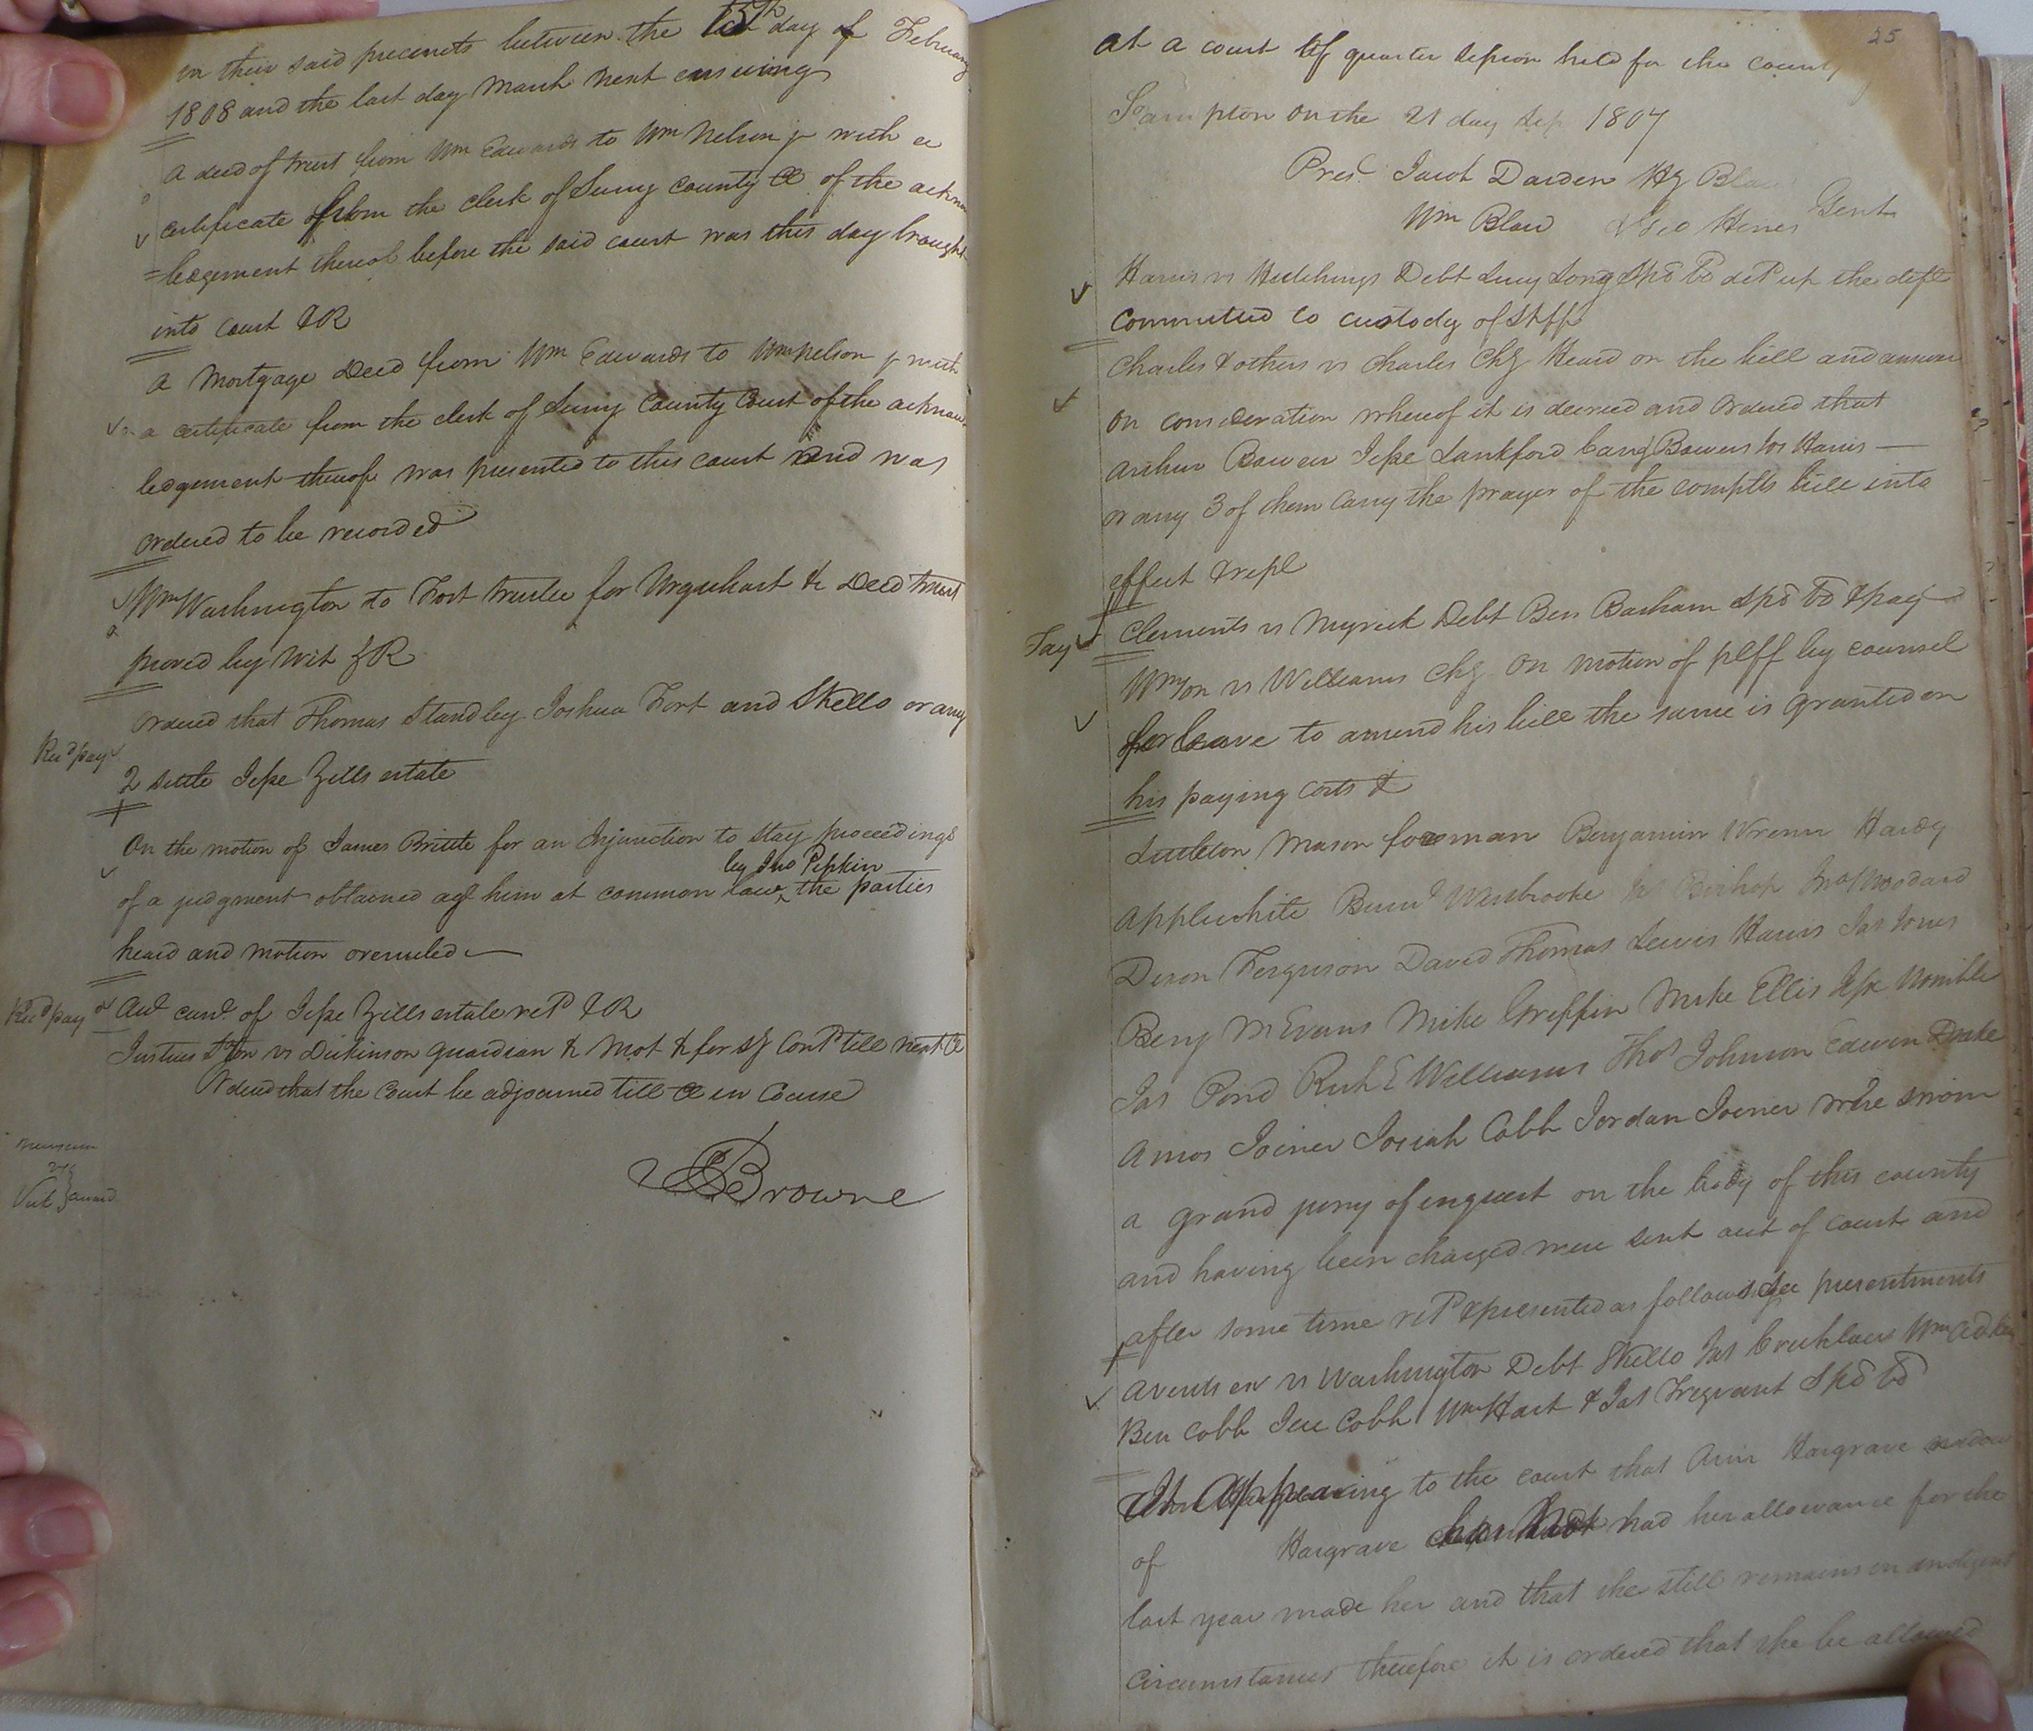 in their said precincts between the 15th day of February
1808 and the last day March next ensuing
a deed of trust from Wm Edwards to Wm Nelson jr with a
certificate from the clerk of Surry County Ct of the acknow
=ledgement thereof before the said court was this day brought
into Court &R
a Mortgage Deed from Wm Edwards to Wm Nelson jr with
a certificate from the clerk of Surry County Court of the acknow
ledgement thereof was presented to this court and was
ordered to be recorded
Wm Washington to Fort trustee for Urquhart &c Deed trust
proved by Wit &R
ordered that Thomas Standley Joshua Fort and SKello or any
Recd pay
2 settle Jesse Zills estate
On the motion of James Brittle for an Injunction to stay proceedings
by Jno Pipkin
of a judgment obtained agt him at common law ^ the parties
heard and motion overruled
Recd pay
Aud. curt. of Jesse Zills estate retd &R
Justices Sopton vs Dickinson guardian &c Mot &c for Sy Contd till next Ct
Ordered that the Court be adjourned till Ct in Course
Vict award
Browne
25
At a court of quarter session held for the county
Sampton on the 21 day Sep 1807
Pres. Jacob Darden Hy Blow
Wm Blow & Geo Hines Gent
Harris vs Hutchings Debt Lucy Long Spd bd set up the deft
committed to custody of Shff
Charles & others vs Charles Chy Heard on the bill and answer
on consideration whereof it is decreed and ordered that
Arthur Bowen Jesse Lankford Carry Bowers Jos Harris
or any 3 of them carry the prayer of the complts bill into
effect & repl
Fay
Clements vs Myrick Debt Ben Barham spd bd & pay
Wmson vs Williams Chy On motion of plff by counsel
for leave to amend his bill the same is granted on
his paying costs &
Littleton Mason foreman Benjamin Wrenn Hardy
Applewhite Burwl Westbrooke Jas Bishop Jno Woodard
Dixon Ferguson David Thomas Lewis Harris Jas Jones
Benj M Evans Mike Griffin Mike Ellis Jesse Womble
Jas Pond Rich E Williams Thos Johnson Edwin Drake
Amos Joiner Josiah Cobb Jordan Joiner were sworn
a grand jury of inquest on the body of this county
and having been charged were sent out of court and
after some time retd & presented as follows See presentments
Avents exr vs Washington Debt SKello Jas Crichlow Wm Adkins
Ben Cobb Jere Cobb Wm Hart & Jas Trezvant Spd bd
It Appearing to the court that Ann Hargrave widow
of Hargrave has not had her allowance for the
last year made her and that she still remains in indigent
Circumstances therefore it is ordered that she be allowed